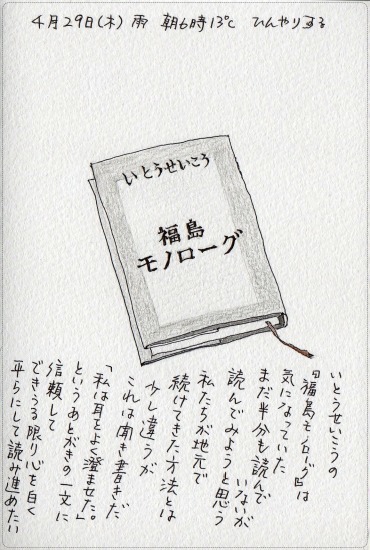 4月29日(木) 雨 朝6時13℃ ひんやりする
いとうせいこう
福島
モノローグ
いとうせいこうの
『福島モノローグ』は
気になっていた
まだ半分も読んで
いないが
読んでみようと思う
私たちが地元で
続けてきた方法とは
少し違うが
これは聞き書きだ
「私は耳をよく澄ませた。」
というあとがきの一文に
信頼して
できうる限り心を白く
平らにして読み進めたい